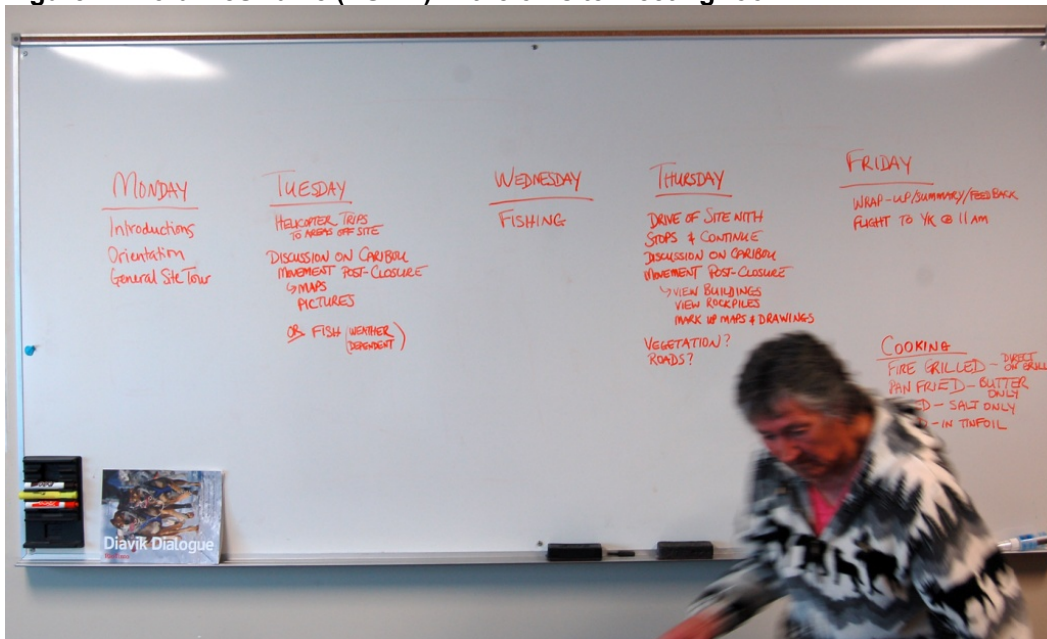 MONDAY
Introductions
Orientation
General Site Tour
TUESDAY
HELICOPTER TRIPS
TO AREAS OFF SITE
DISCUSSION ON CARIBOU
MOVEMENT POST-CLOSURE
↳ MAPS
PICTURES
OR FISH (WEATHER
DEPENDENT)
WEDNESDAY
FISHING
THURSDAY
DRIVE OF SITE WITH
STOPS & CONTINUE
DISCUSSION ON CARIBOU
MOVEMENT POST-CLOSURE
↳ VIEW BUILDINGS
VIEW ROCKPILES
MARK UP MAPS & DRAWINGS
VEGETATION?
ROADS?
FRIDAY
WRAP-UP/SUMMARY/FEEDBACK
FLIGHT TO YK @ 11 AM
COOKING
FIRE GRILLED - DIRECT
ON GRILL
PAN FRIED - BUTTER
ONLY
- SALT ONLY
- IN TINFOIL
Diavik Dialogue